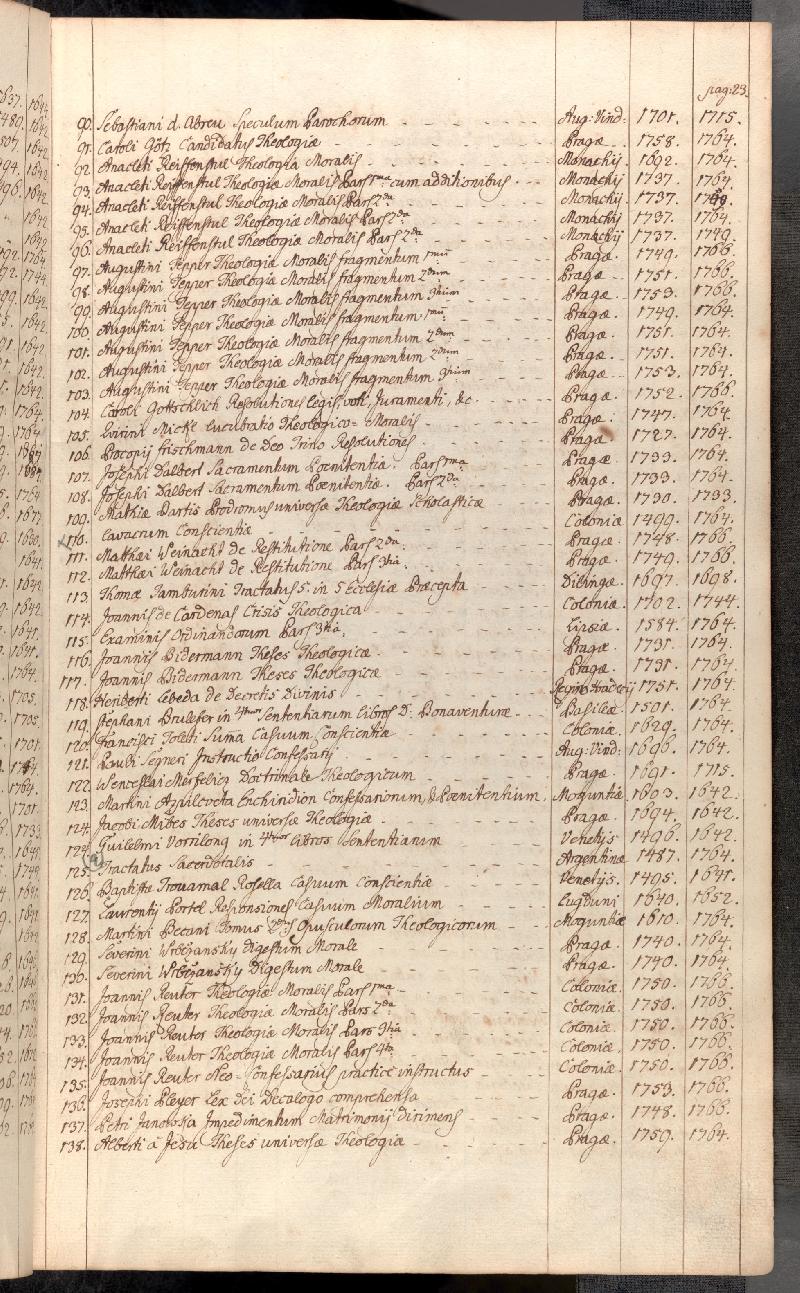 pag: 23.
90. Sebastiani d. Abreu Speculum Parochorum Aug: Vind: 1701. 1715.
91. Caroli Götz Candidatus Theologiæ Pragæ 1758. 1764.
92. Anacleti Reiffenstul Theologia Moralis Monachij 1692. 1764.
93. Anacleti Reiffenstul Theologiæ Moralis Pars 1ma cum additionibus Monachij 1737. 1764.
94. Anacleti Reiffenstul Theologiæ Moralis Pars 2da Monachij 1737.
95. Anacleti Reiffenstul Theologiæ Moralis Pars 2da Monachij 1737. 1764.
96. Anacleti Reiffenstul Theologiæ Moralis Pars 2da Monachij 1737. 1749.
97. Augustini Tepper Theologiæ Moralis fragmentum 1mū Pragæ 1749. 1766.
98. Augustini Tepper Theologiæ Moralis fragmentum 2dum Pragæ 1751. 1766.
99. Augustini Tepper Theologiæ Moralis fragmentum 3tium Pragæ 1753. 1766.
100. Augustini Tepper Theologiæ Moralis fragmentum 1mū Pragæ 1749. 1764.
101. Augustini Tepper Theologiæ Moralis fragmentum 2dum Pragæ 1751. 1764.
102. Augustini Tepper Theologiæ Moralis fragmentum 2dum Pragæ 1751. 1764.
103. Augustini Tepper Theologiæ Moralis fragmentum 3tium Pragæ 1753. 1764.
104. Caroli Gottschlich Resolutiones legis, voti, Juramenti, &c. Pragæ 1752. 1766.
105. Quirini Mickl lucubratio Theologico-Moralis Pragæ 1747. 1764.
106. Procopij frischmann de Deo Trino Resolutiones Pragæ 1727. 1764.
107. Josephi Dalbert Sacramentum Poenitentiæ. Pars 1ma Pragæ 1733. 1764.
108. Josephi Dalbert Sacramentum Poenitentiæ. Pars 2da Pragæ 1733. 1764.
109. Mathiæ Bartis Prodromus universæ Theologiæ Scholasticæ Pragæ 1730. 1733.
110. Lavacrum Conscientiæ Coloniæ 1499. 1764.
111. Matthæi Weinacht de Restitutione Pars 2da. Pragæ 1748. 1766.
112. Matthæi Weinacht de Restitutione Pars 3tia. Pragæ 1749. 1766.
113 Thomæ Tamburini Tractatus 5. in 5 Ecclesiæ Præcepta Dilingæ 1697. 1698.
114. Joannis de Cardenas Crisis Theologica Coloniæ 1702. 1744.
115. Examinis Ordinandorum Pars 3tia. Lipsiæ 1584. 1764.
116. Joannis Bidermann Theses Theologicæ Pragæ 1731. 1764.
117. Joannis Bidermann Theses Theologicæ Pragæ 1731. 1764.
118. Heriberti Lebeda de Decretis Divinis 1751. 1764.
119. Stephani Brulefer in 4tuor Sententiarum libros D: Bonaventuræ Basileæ 1501. 1764.
120. Francisci Toleti Suma Casuum Conscientiæ Coloniæ 1629. 1764.
121. Pauli Segneri Instructio Confessarij Aug: Vind: 1696. 1764.
122. Wenceslai Merfelicz Doctrinale Theologicum Pragæ 1691. 1715.
123. Martini Azpilcveta Enchiridion Confessariorum, & Poenitentium. Moguntiæ 1603. 1642.
124. Jacobi Mibes Theses universæ Theologiæ Pragæ 1694. 1642.
124. Guilelmi Vorrilong in 4tuor libros Sententiarum Venetijs 1496. 1642.
125. Tractatus Sacerdotalis Argentinæ 1487. 1764.
126. Baptistæ Trouamal Rosella Casuum Conscientiæ Venetijs. 1495. 1641.
127. Laurentij Portel Responsiones Casuum Moralium Lugduni 1640. 1652.
128. Martini Becani Tomus 2dus Opusculorum Theologicorum Moguntiæ 1610. 1764.
129. Severini Wrbczansky Digestum Morale Pragæ 1740. 1764.
130. Severini Wrbczansky Digestum Morale Pragæ 1740. 1764.
131. Joannis Reuter Theologiæ Moralis Pars 1ma Coloniæ 1750. 1766.
132. Joannis Reuter Theologiæ Moralis Pars 2da Coloniæ 1750. 1766.
133. Joannis Reuter Theologiæ Moralis Pars 3tia Coloniæ 1750. 1766.
134. Joannis Reuter Theologiæ Moralis Pars 4ta Coloniæ 1750. 1766.
135. Joannis Reuter Neo-Confessarius practice instructus Coloniæ 1750. 1766.
136. Josephi Pleyer Lex Dei Decalogo comprehensa Pragæ 1753. 1766.
137. Petri Janovka Impedimentum Matrimonij dirimens Pragæ 1748. 1766.
138. Alberti à Jesu Theses universæ Theologiæ Pragæ 1759. 1764.